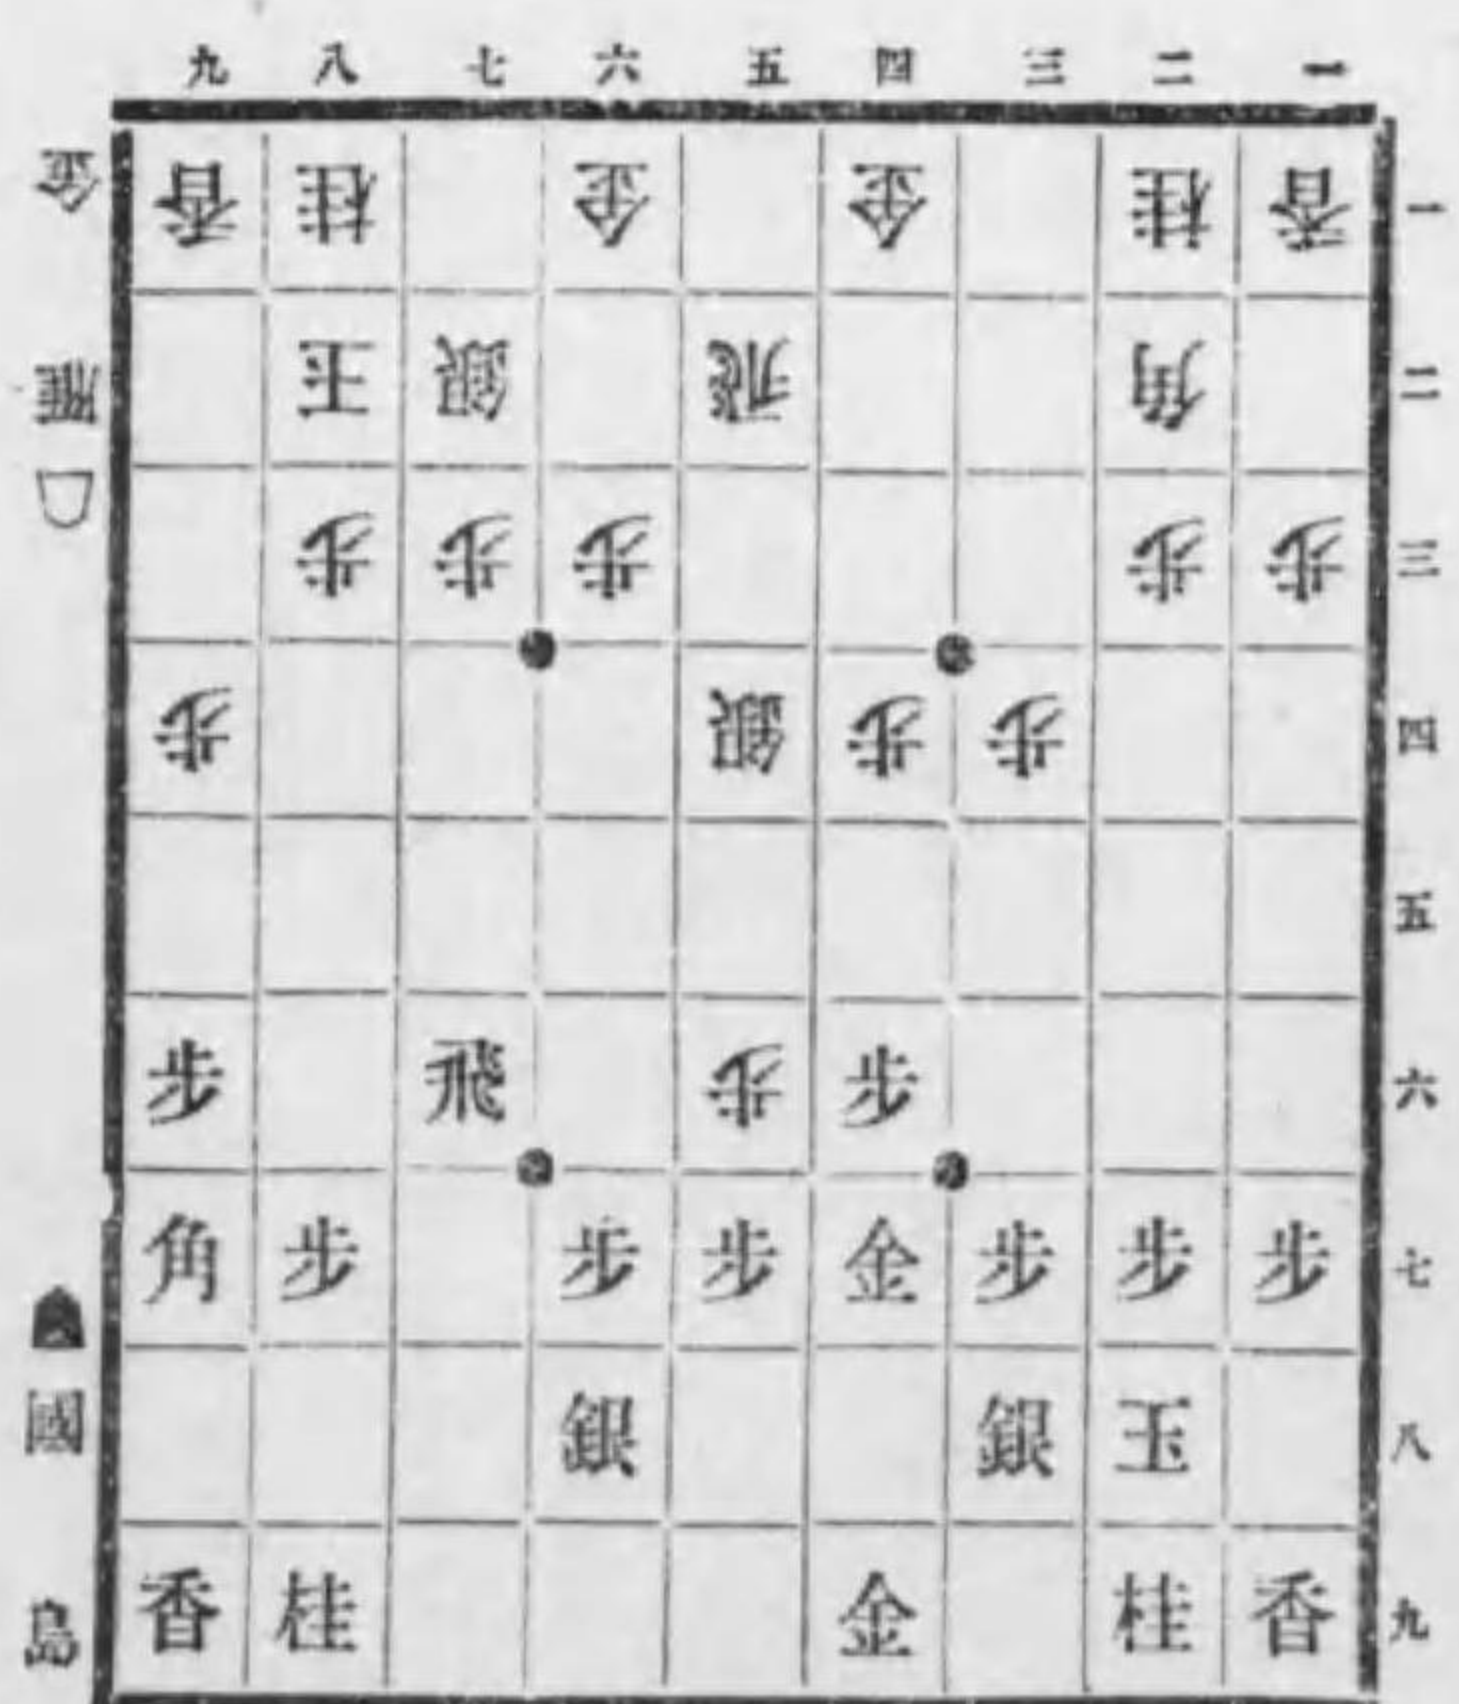 九 八 七 六 五 四 三 二 一
香 桂 金 金 桂 香 一
玉 銀 飛 角 二
歩 歩 歩 歩 歩 三
歩 銀 歩 歩 四
五
歩 飛 歩 歩 六
角 歩 歩 歩 金 歩 歩 歩 七
銀 銀 玉 八
香 桂 金 桂 香 九
金
雁
國
島